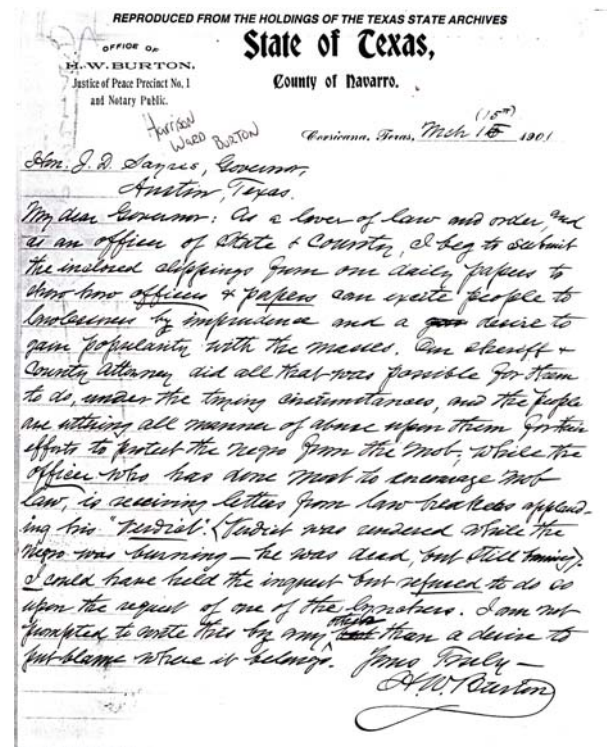 REPRODUCED FROM THE HOLDINGS OF THE TEXAS STATE ARCHIVES
OFFICE OF
H. W. BURTON,
Justice of Peace Precinct No. 1
and Notary Public.
State of Texas,
County of Navarro.
HARRISON
WARD BURTON
(15th)
Corsicana, Texas, Mch 15 1901
Hon. J. D. Sayres, Governor,
Austin, Texas.
My dear Governor: As a lover of law and order, and
as an officer of State & County, I beg to submit
the inclosed clippings from our daily papers to
show how officers & papers can excite people to
lawlessness by imprudence and a desire to
gain popularity with the masses. Our sheriff &
County Attorney did all that was possible for them
to do, under the trying circumstances, and the people
are uttering all manner of abuse upon them for their
efforts to protect the negro from the mob; while the
officer who has done most to encourage mob
law, is receiving letters from law breakers applaud-
ing his "Verdict". (Verdict was rendered while the
negro was burning — he was dead, but still burning).
I could have held the inquest but refused to do so
upon the request of one of the lynchers. I am not
prompted to write this by any other than a desire to
put blame where it belongs. Yours Truly —
H. W. Burton